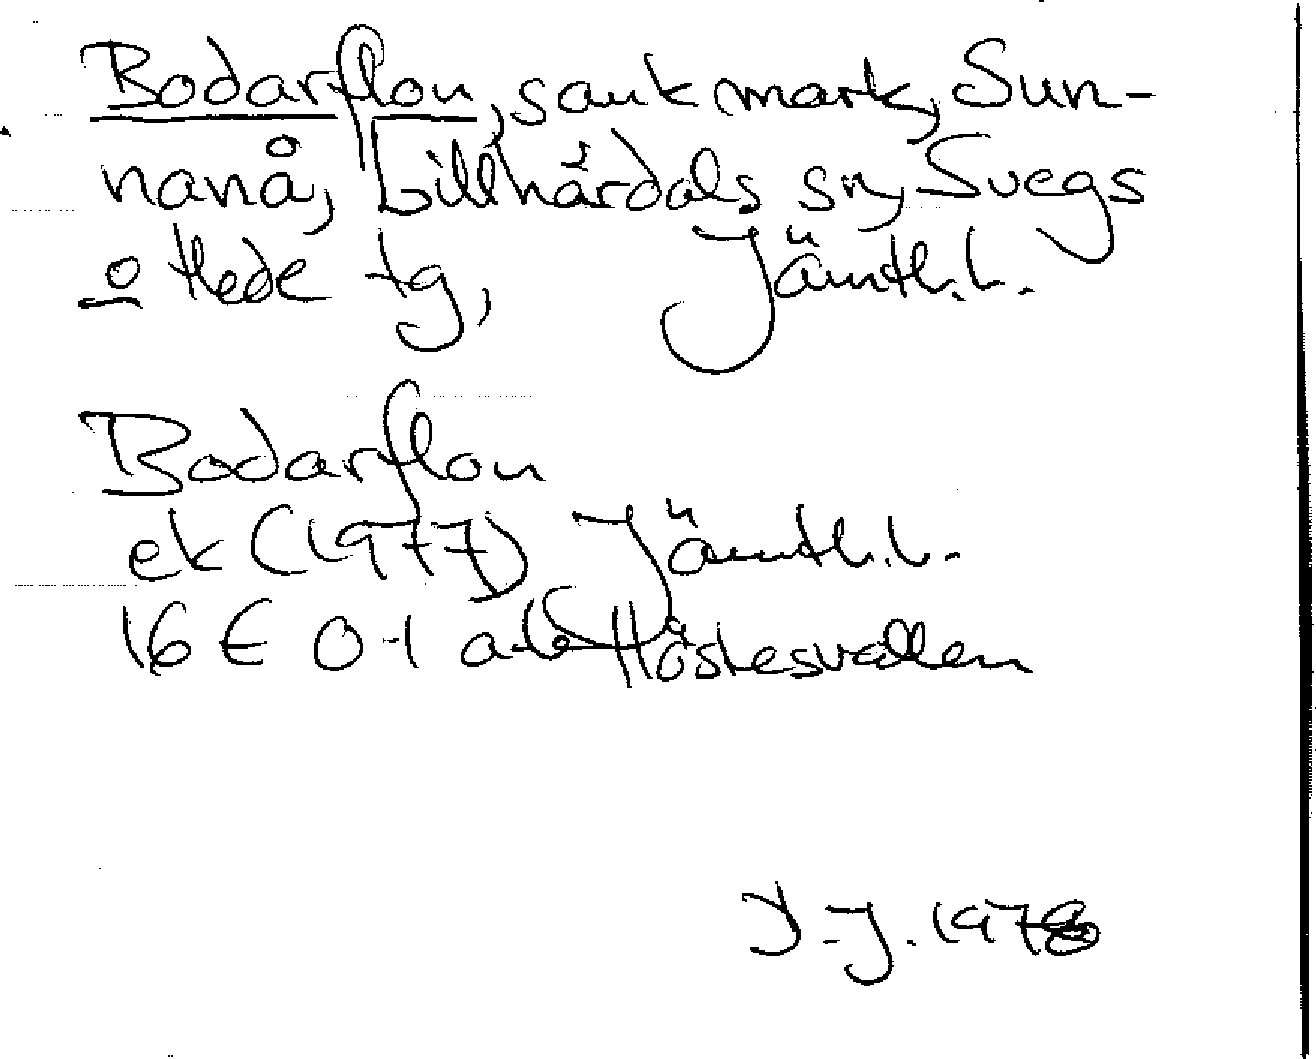 Bodarflon, sank mark, Sun-
nanå, Lillhärdals sn, Svegs
o Hede tg, Jämtl. l.
Bodarflon
ek (1977) Jämtl. l.
16 E 0-1 a-b
D. J. 1978